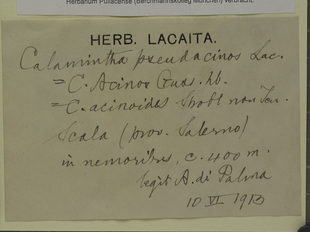 Herbarium Pullacense (Berchmanskolleg München) verbracht.
HERB. LACAITA.
Calamintha pseudacinos Lac.
= C. Acinos Guss. hb.
= C. acinoides Strobl non Ten.
Scala (prov. Salerno)
in nemoribus, c. 400 m.
legit A. di Palma
10 VI 1913